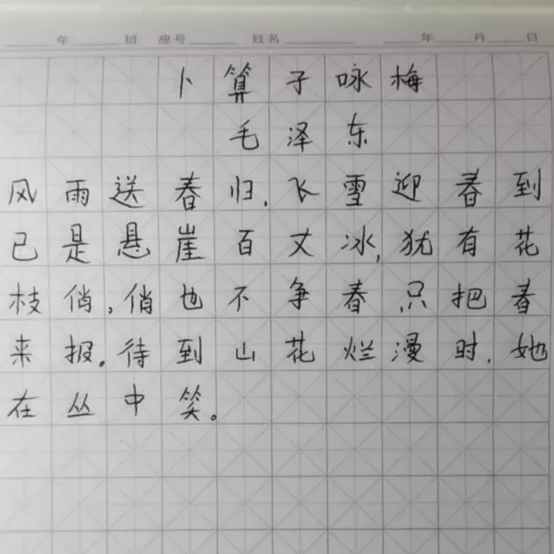 年 班 座号 姓名 年 月 日
卜算子咏梅
毛泽东
风雨送春归,飞雪迎春到
已是悬崖百丈冰,犹有花
枝俏。俏也不争春只把春
来报。待到山花烂漫时,她
在丛中笑。